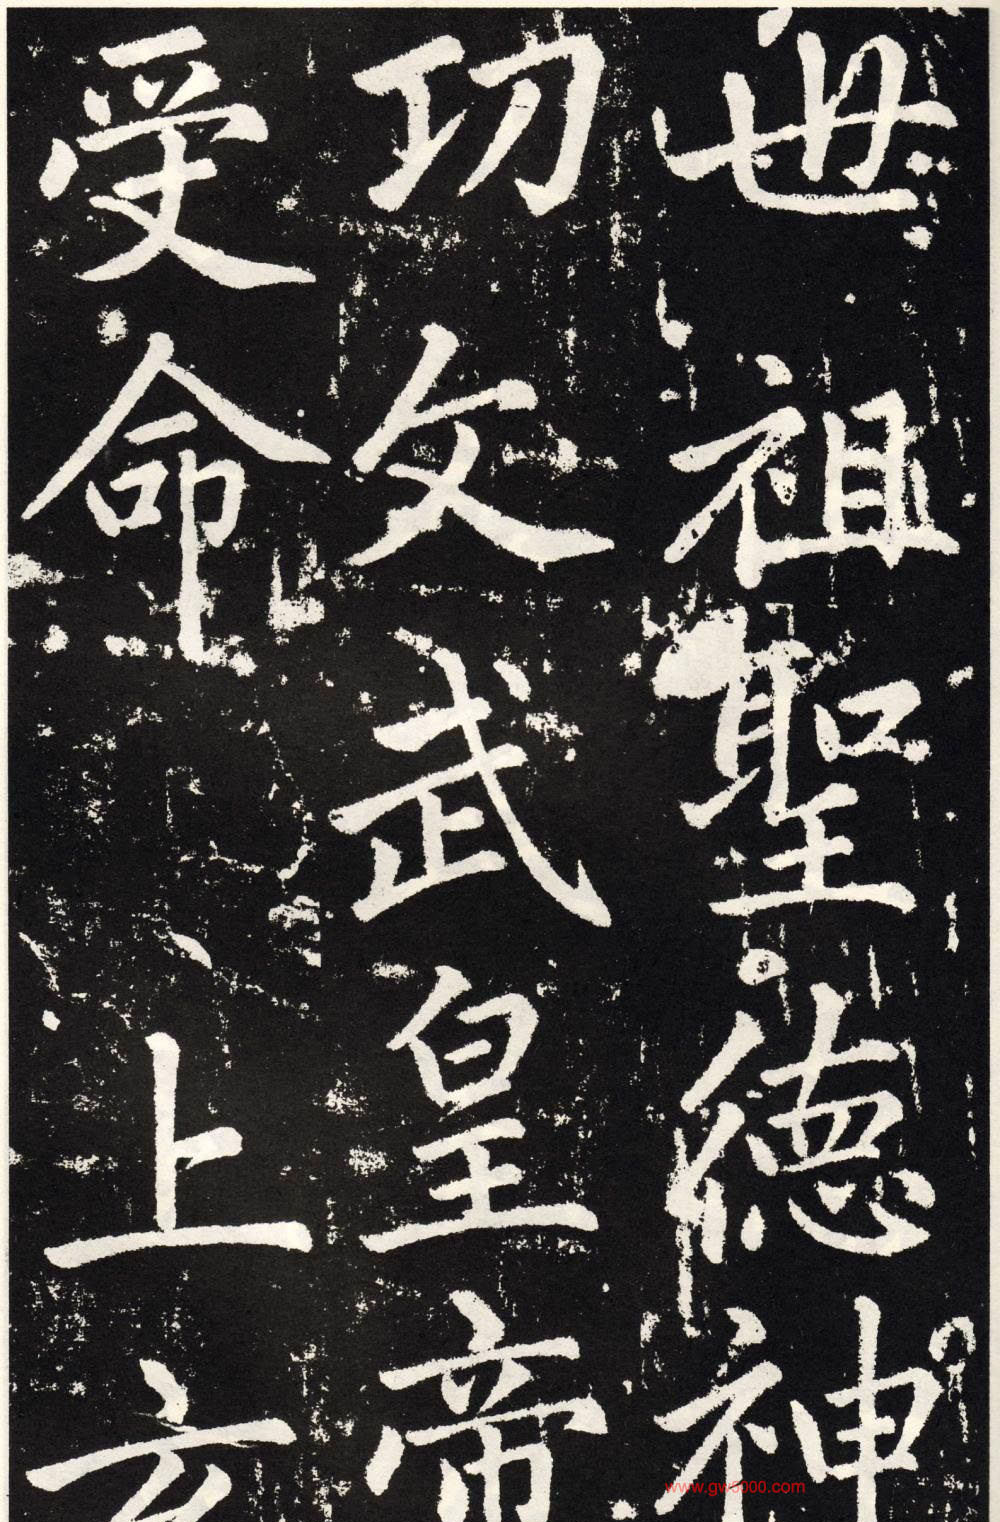 世祖聖徳神
功文武皇帝
受命上玄
www.gw5000.com